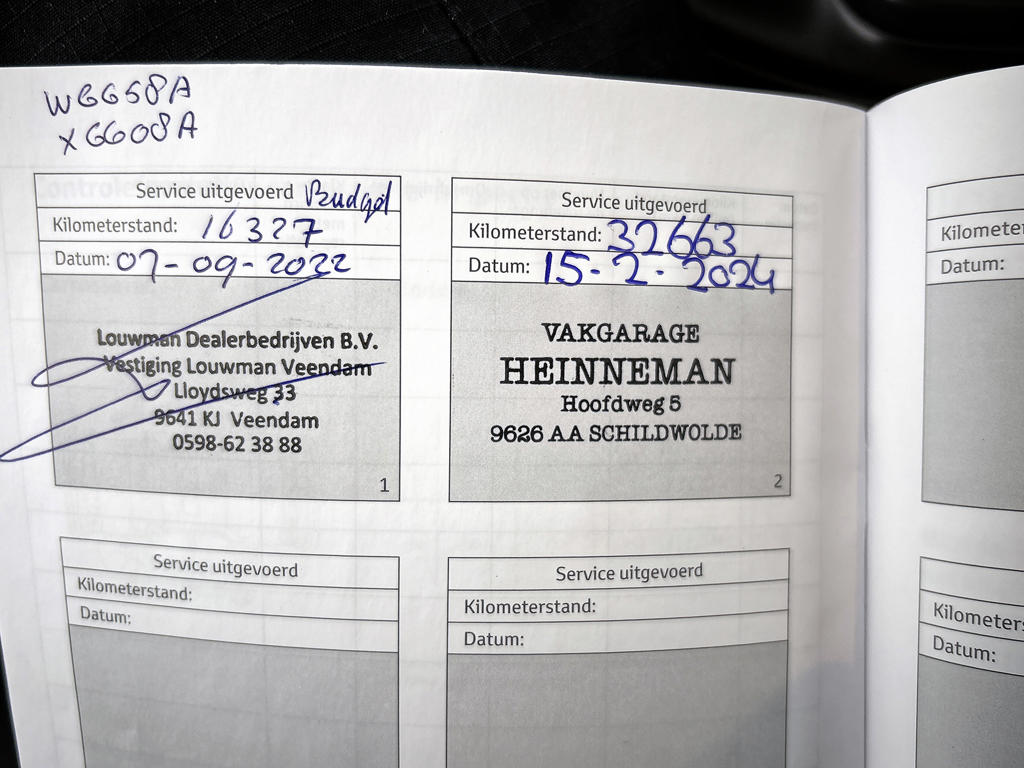 WGG58A
XGG08A
Service uitgevoerd Budget
Kilometerstand: 16327
Datum: 07-09-2022
Louwman Dealerbedrijven B.V.
Vestiging Louwman Veendam
Lloydsweg 33
9641 KJ Veendam
0598-62 38 88
1
Service uitgevoerd
Kilometerstand: 32663
Datum: 15-2-2024
VAKGARAGE
HEINNEMAN
Hoofdweg 5
9626 AA SCHILDWOLDE
2
Kilometer
Datum:
Service uitgevoerd
Kilometerstand:
Datum:
Service uitgevoerd
Kilometerstand:
Datum:
Kilometers
Datum: